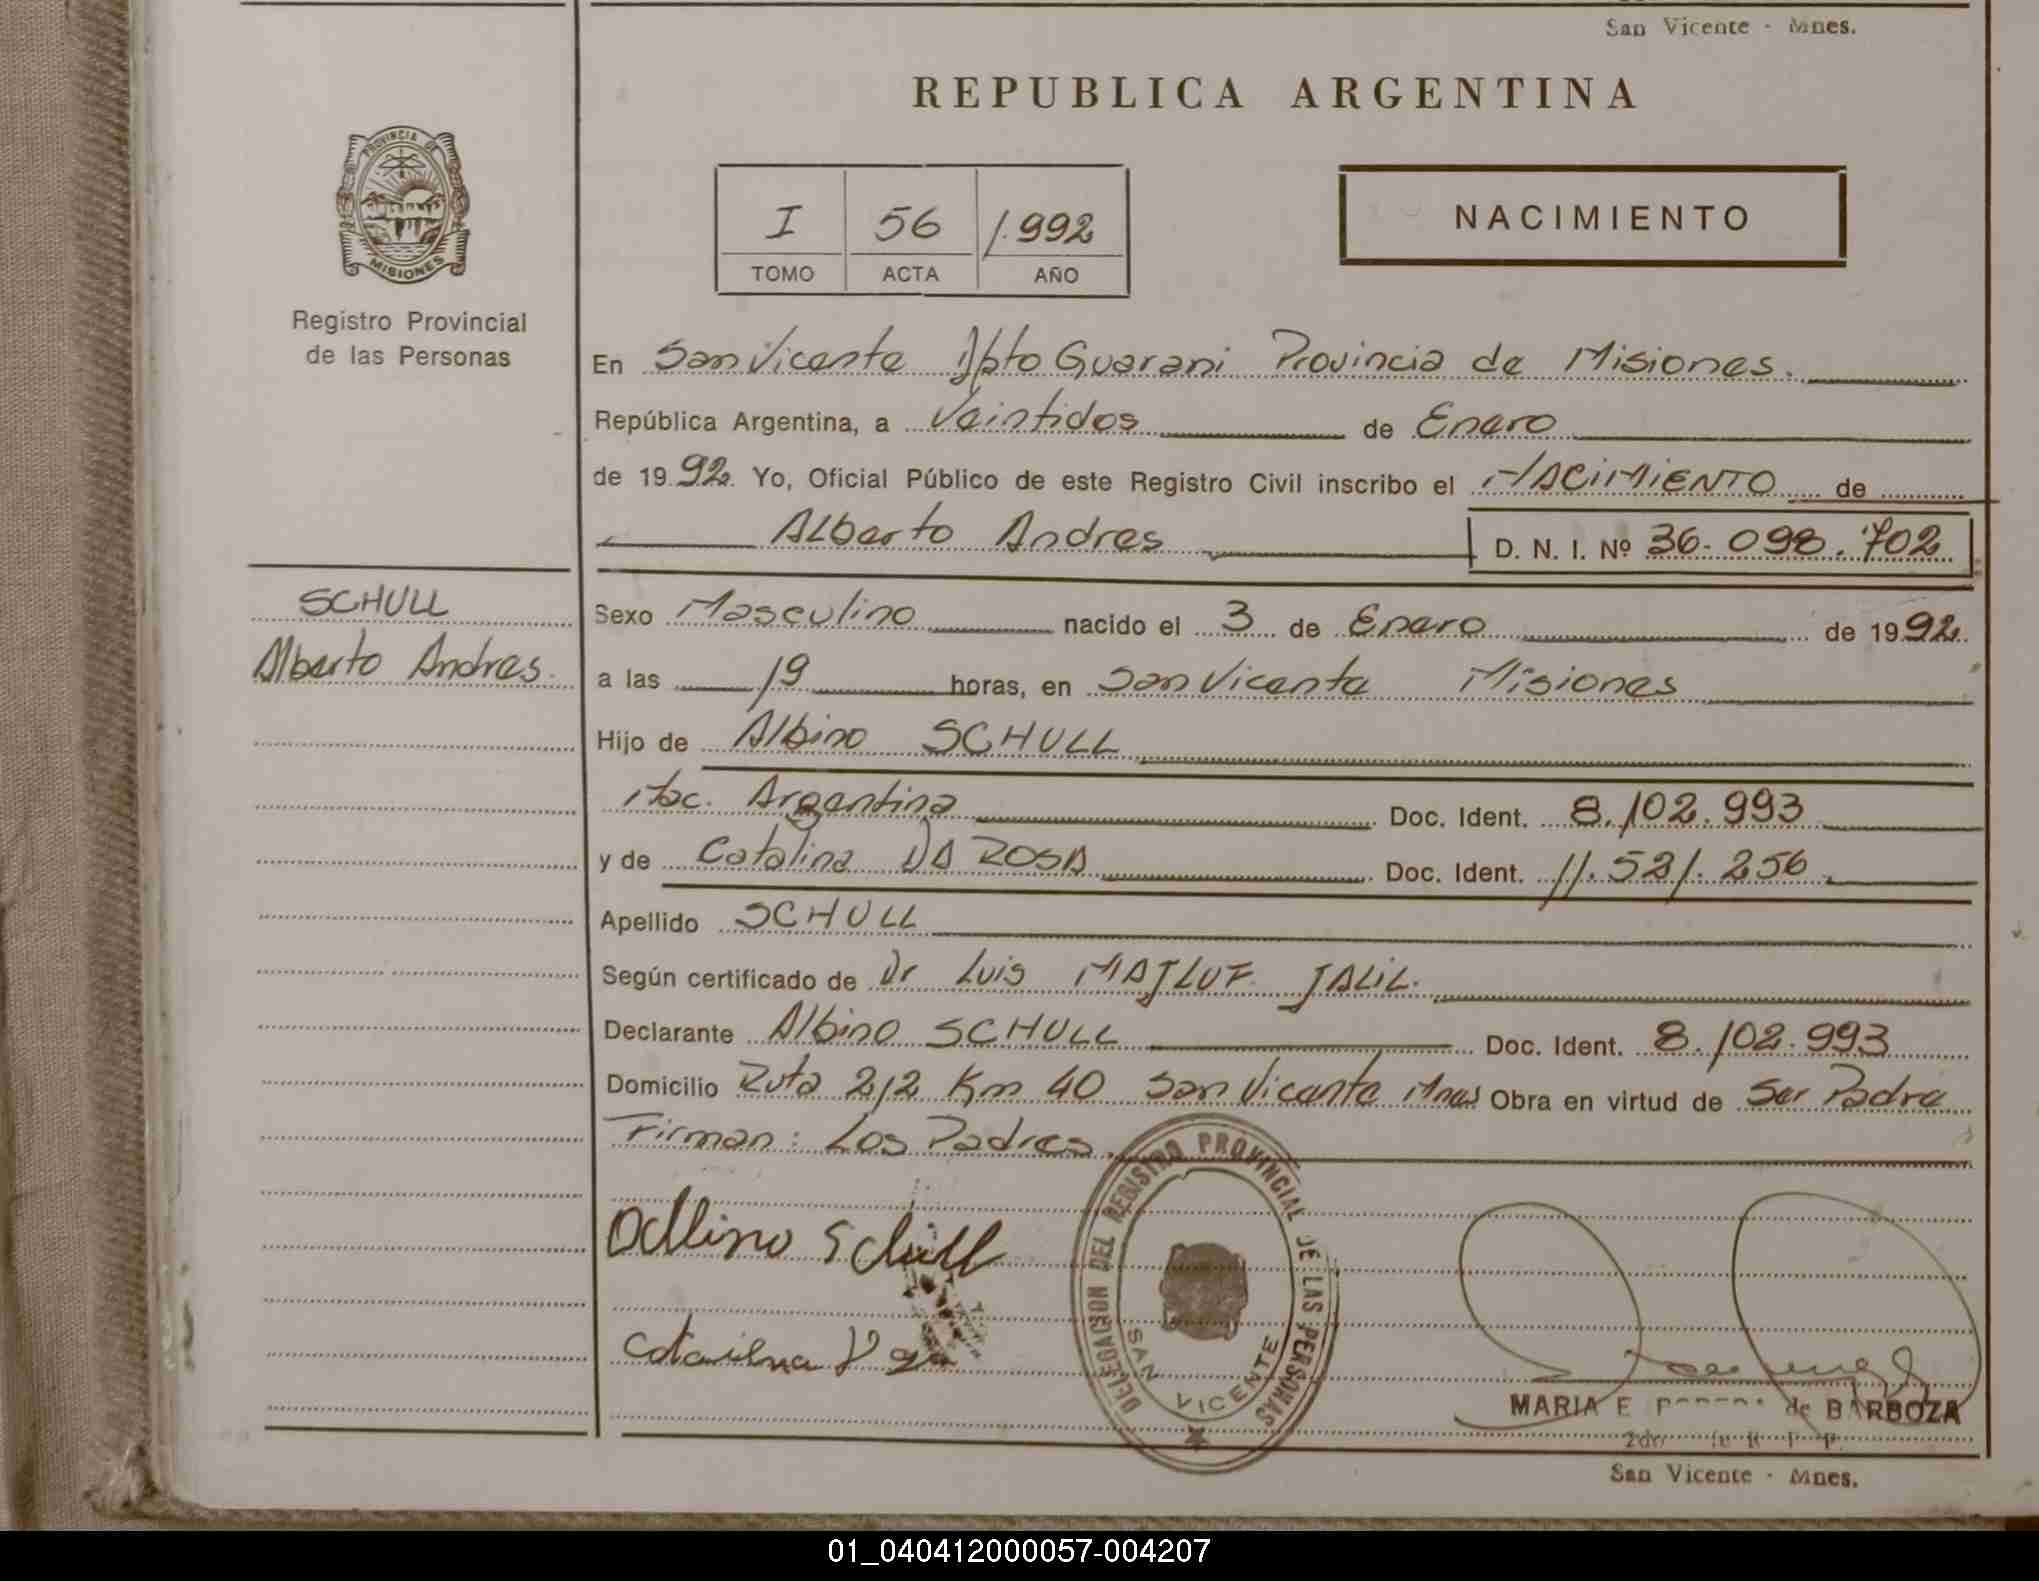 San Vicente - Mnes.
REPUBLICA ARGENTINA
PROVINCIA DE
MISIONES
Registro Provincial
de las Personas
I 56 1.992
TOMO ACTA AÑO
NACIMIENTO
En San Vicente Dpto Guarani Provincia de Misiones.
República Argentina, a Veintidos de Enero
de 1992. Yo, Oficial Público de este Registro Civil inscribo el NACIMIENTO de
Alberto Andres D. N. I. Nº 36.098.702
SCHULL
Alberto Andres.
Sexo Masculino nacido el 3 de Enero de 1992.
a las 19 horas, en San Vicente Misiones
Hijo de Albino SCHULL
Nac. Argentina Doc. Ident. 8.102.993
y de Catalina DA ROSA Doc. Ident. 11.521.256
Apellido SCHULL
Según certificado de Dr Luis MAJLUF JALIL.
Declarante Albino SCHULL Doc. Ident. 8.102.993
Domicilio Ruta 212 Km 40 San Vicente Mnes Obra en virtud de Ser Padre
Firman: Los Padres
DELEGACION DEL REGISTRO PROVINCIAL DE LAS PERSONAS
SAN VICENTE
Schull
MARIA E de BARBOZA
San Vicente - Mnes.
01_040412000057-004207